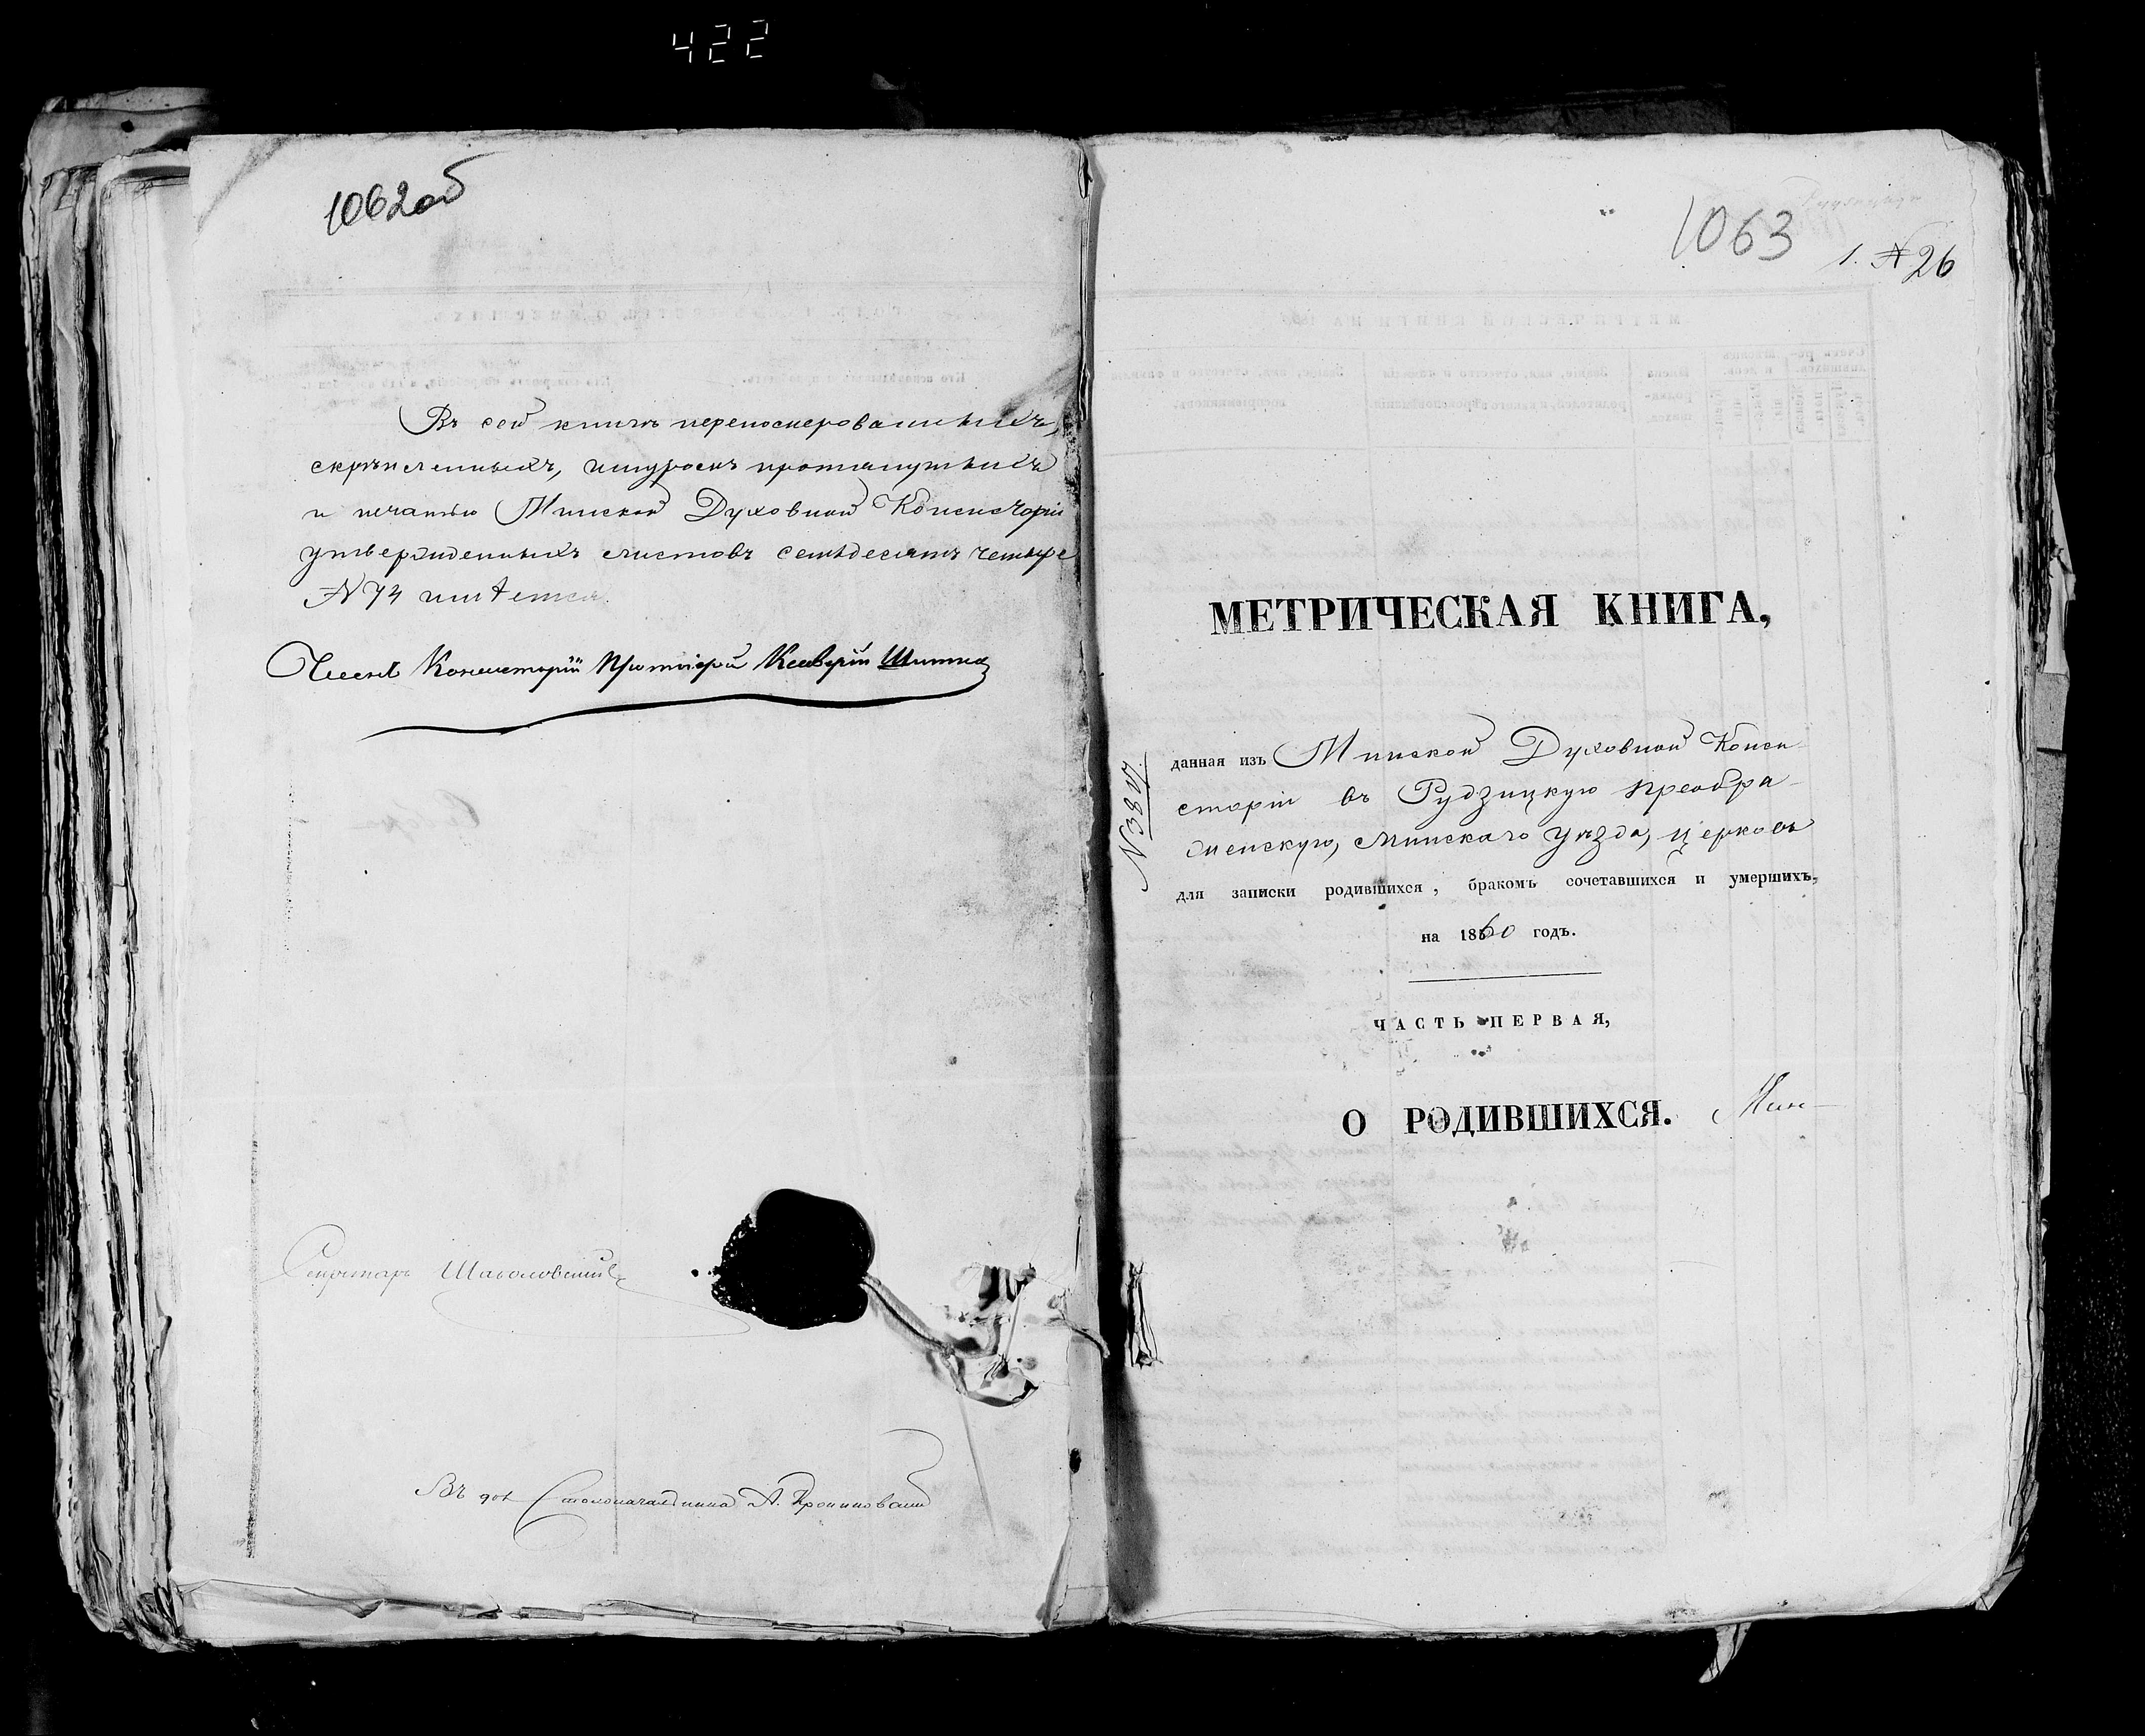 422
1062об
Въ сей книгѣ перенумерованныхъ,
скрѣпленныхъ, шнуромъ протянутыхъ
и печатью Минской Духовной Консисторіи
утвержденныхъ листовъ семьдесятъ четыре
№ 74 имѣется.
Членъ Консисторіи Протоіерей Ксаверій
Секретарь
Въ дол. Столоначальника А.
1063
1. № 26
МЕТРИЧЕСКАЯ КНИГА,
№ 3807.
данная изъ Минской Духовной Конси-
сторіи въ Рудзицкую Преобра-
женскую, Минскаго уѣзда, церковь
для записки родившихся, бракомъ сочетавшихся и умершихъ,
на 1860 годъ.
ЧАСТЬ ПЕРВАЯ,
О РОДИВШИХСЯ.
Мин-